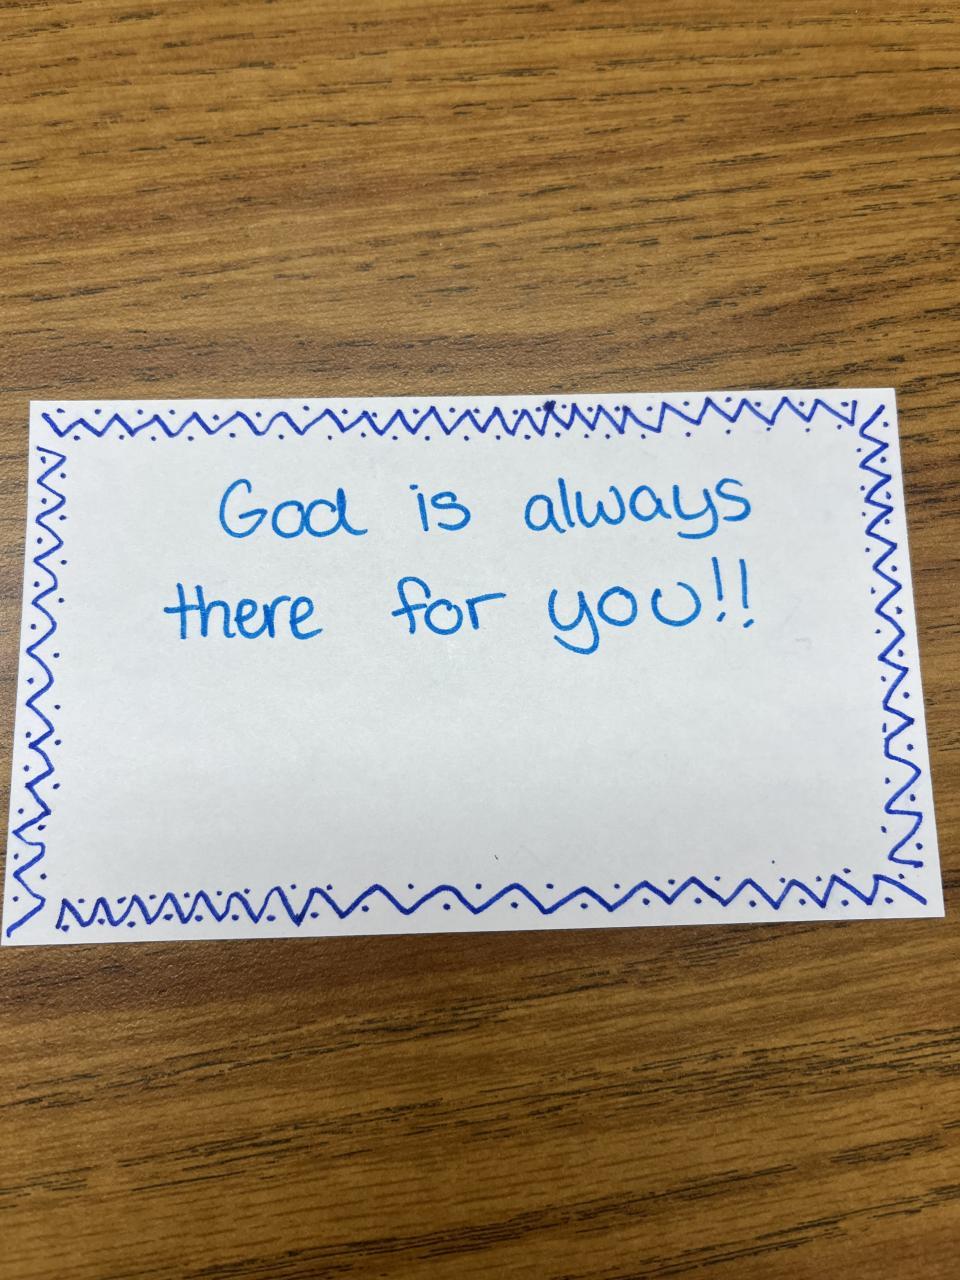 God is always
there for you!!